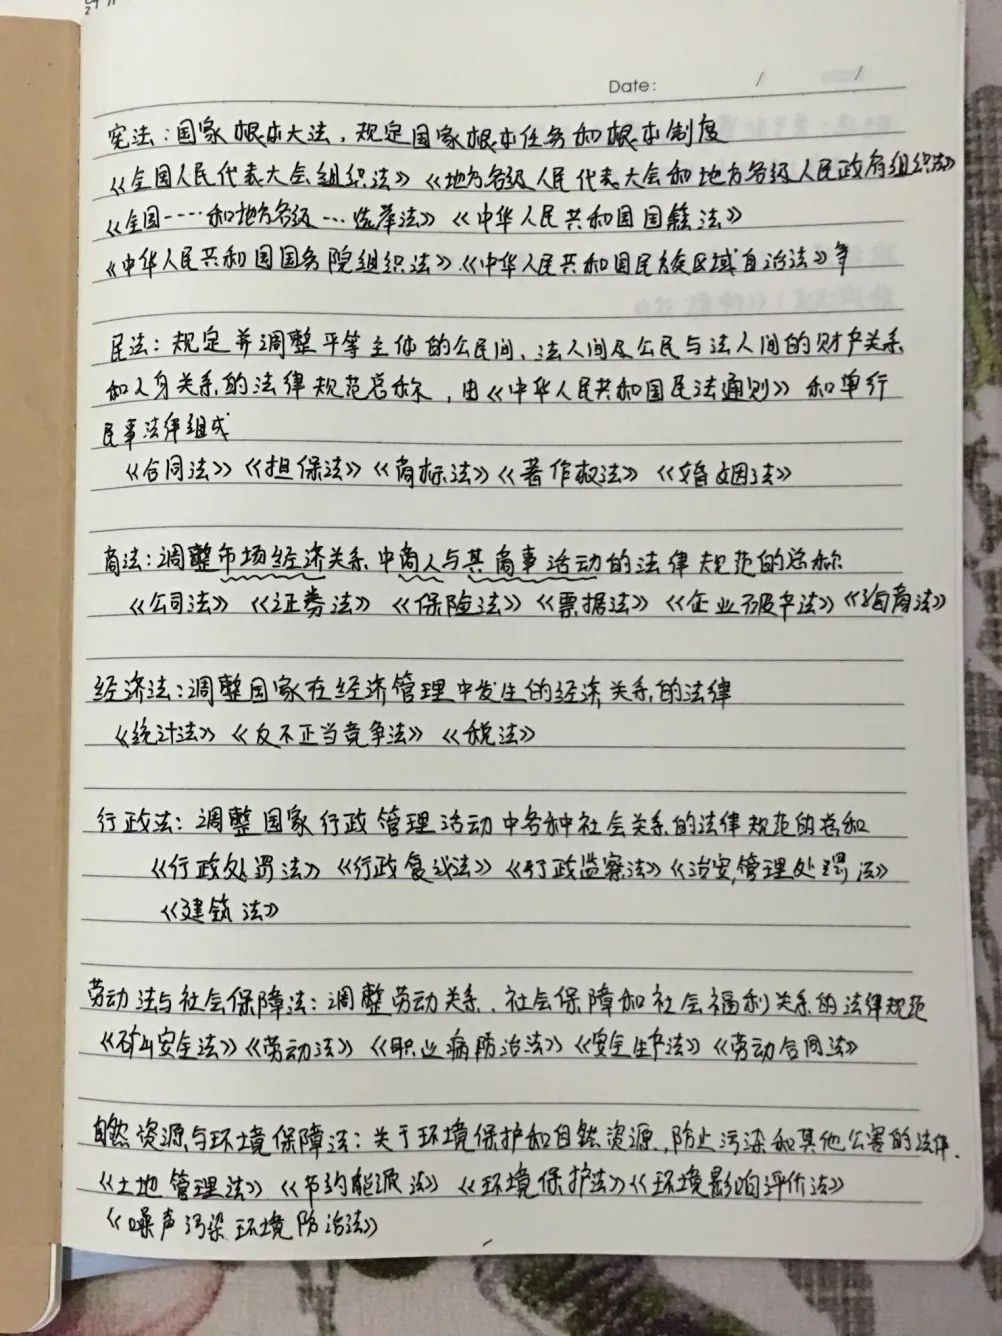 Date: / /
宪法：国家根本大法，规定国家根本任务和根本制度
《全国人民代表大会组织法》《地方各级人民代表大会和地方各级人民政府组织法》
《全国····和地方各级…选举法》《中华人民共和国国籍法》
《中华人民共和国国务院组织法》《中华人民共和国民族区域自治法》等
民法：规定并调整平等主体的公民间、法人间及公民与法人间的财产关系
和人身关系的法律规范总称，由《中华人民共和国民法通则》和单行
民事法律组成
《合同法》《担保法》《商标法》《著作权法》《婚姻法》
商法：调整市场经济关系中商人与其商事活动的法律规范的总称
《公司法》《证券法》《保险法》《票据法》《企业破产法》《海商法》
经济法：调整国家在经济管理中发生的经济关系的法律
《统计法》《反不正当竞争法》《税法》
行政法：调整国家行政管理活动中各种社会关系的法律规范的总和
《行政处罚法》《行政复议法》《行政监察法》《治安管理处罚法》
《建筑法》
劳动法与社会保障法：调整劳动关系、社会保障和社会福利关系的法律规范
《矿山安全法》《劳动法》《职业病防治法》《安全生产法》《劳动合同法》
自然资源与环境保障法：关于环境保护和自然资源，防止污染和其他公害的法律.
《土地管理法》《节约能源法》《环境保护法》《环境影响评价法》
《噪声污染环境防治法》